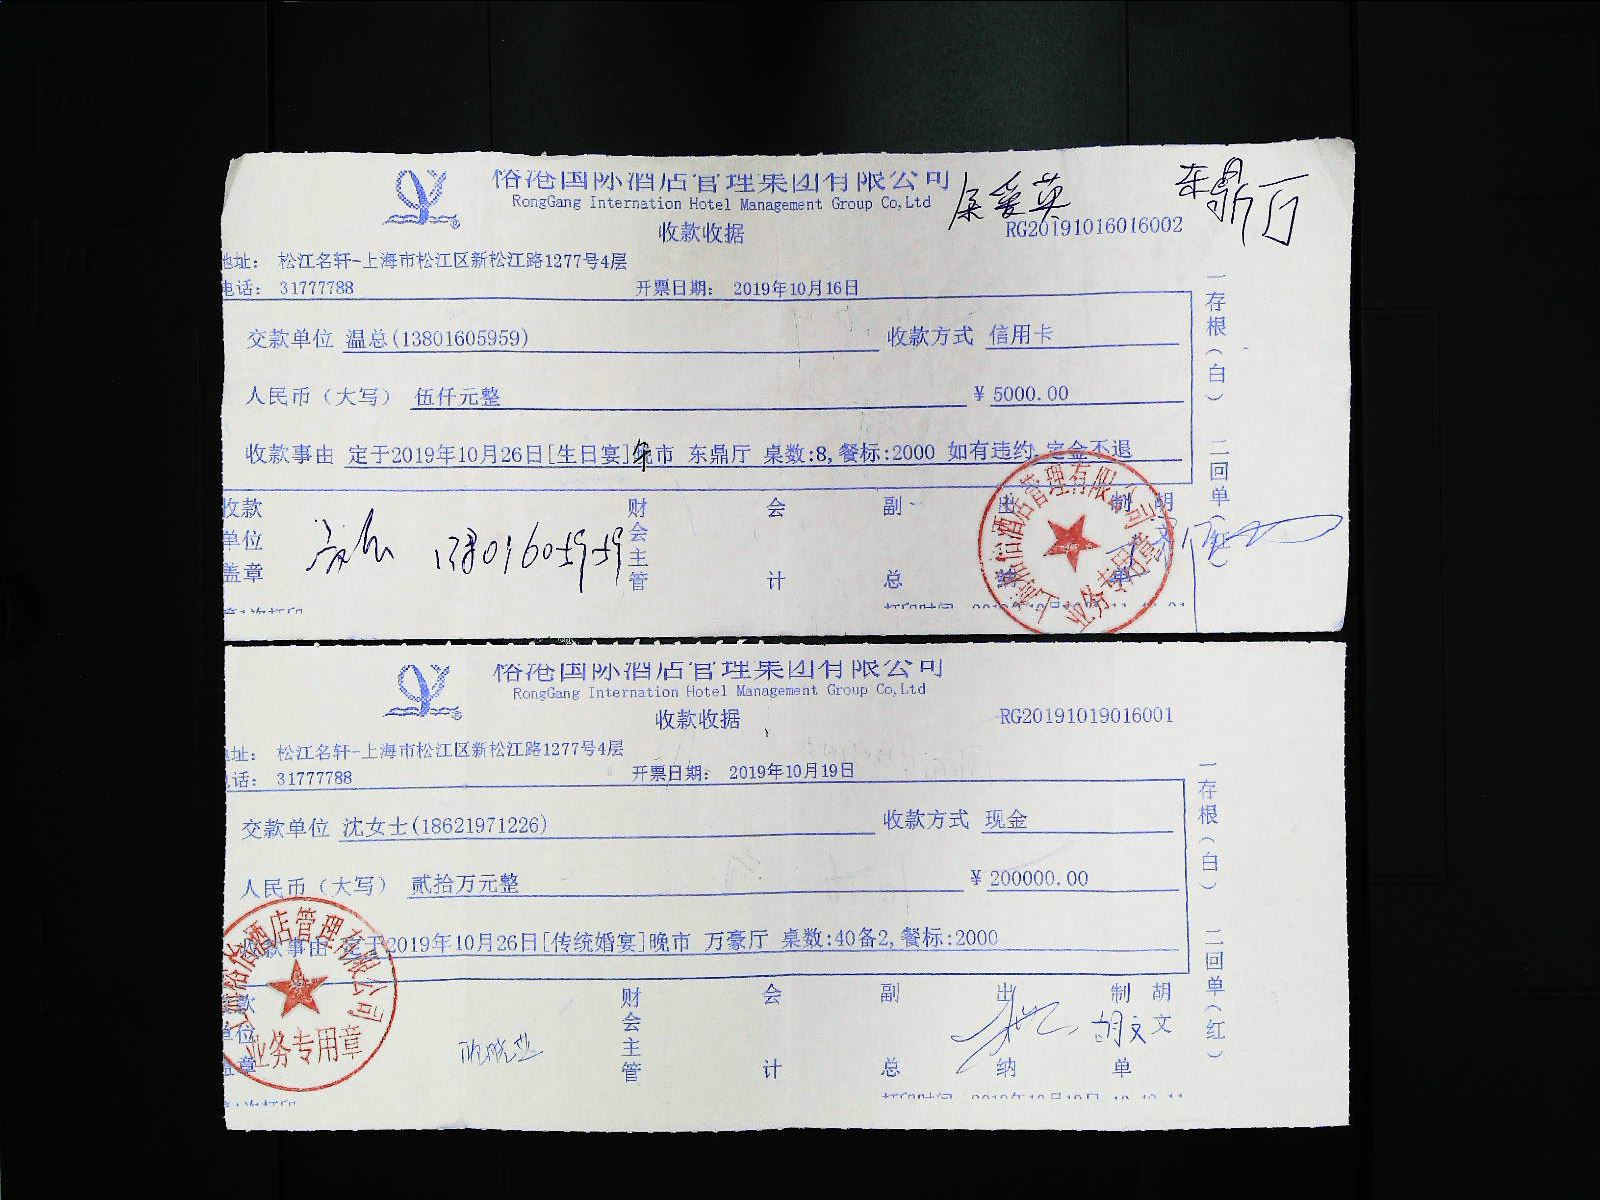 裕港国际酒店管理集团有限公司
RongGang Internation Hotel Management Group Co,Ltd
东鼎厅
收款收据
RG20191016016002
地址: 松江名轩-上海市松江区新松江路1277号4层
电话: 31777788 开票日期: 2019年10月16日
交款单位 温总(13801605959) 收款方式 信用卡
人民币(大写) 伍仟元整 ¥ 5000.00
收款事由 定于2019年10月26日[生日宴]晚市 东鼎厅 桌数:8,餐标:2000 如有违约 定金不退
收款单位盖章 13801605959 财会主管 会计 副总 出纳 制单 胡文
酒店管理有限公司
业务专用章
一存根(白) 二回单(红)
裕港国际酒店管理集团有限公司
RongGang Internation Hotel Management Group Co,Ltd
收款收据
RG20191019016001
地址: 松江名轩-上海市松江区新松江路1277号4层
电话: 31777788 开票日期: 2019年10月19日
交款单位 沈女士(18621971226) 收款方式 现金
人民币(大写) 贰拾万元整 ¥ 200000.00
收款事由 定于2019年10月26日[传统婚宴]晚市 万豪厅 桌数:40备2,餐标:2000
收款单位盖章 财会主管 会计 副总 出纳 制单 胡文
胡文
酒店管理有限公司
业务专用章
一存根(白) 二回单(红)